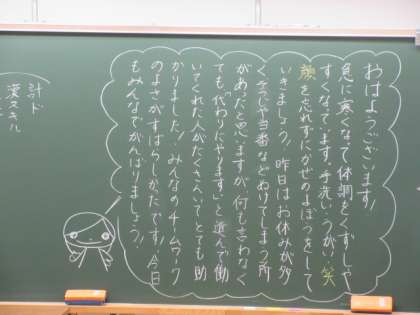 おはようございます!
急に寒くなって体調をくずしや
すくなっています。手洗い、うがい、笑
顔を忘れずにかぜのよぼうをして
いきましょう! 昨日はお休みが多
く、そうじや当番などぬけてしまう所
があったと思いますが、何も言わなく
ても"代わりにやります"と進んで働
いてくれた人がたくさんいてとても助
かりました!みんなのチームワーク
のよさがすばらしかったです!今日
もみんなでがんばりましょう!
計ド
漢スキル